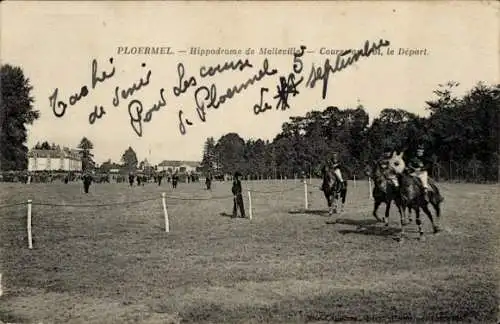 PLOERMEL. — Hippodrome de Malleville — Course au Trot, le Départ.
Tache
de venir
Pour Les course
à Ploermel
le 5
septembre